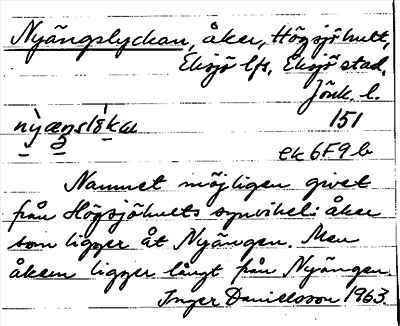 Nyängslyckan, åker, Högsjöhult,
Eksjö lfs, Eksjö stad,
Jönk. l.
151
ek 6F9b
Namnet möjligen givet
från Högsjöhults synvinkel: åker
som ligger åt Nyängen. Men
åkern ligger långt från Nyängen.
Inger Danielsson 1963.